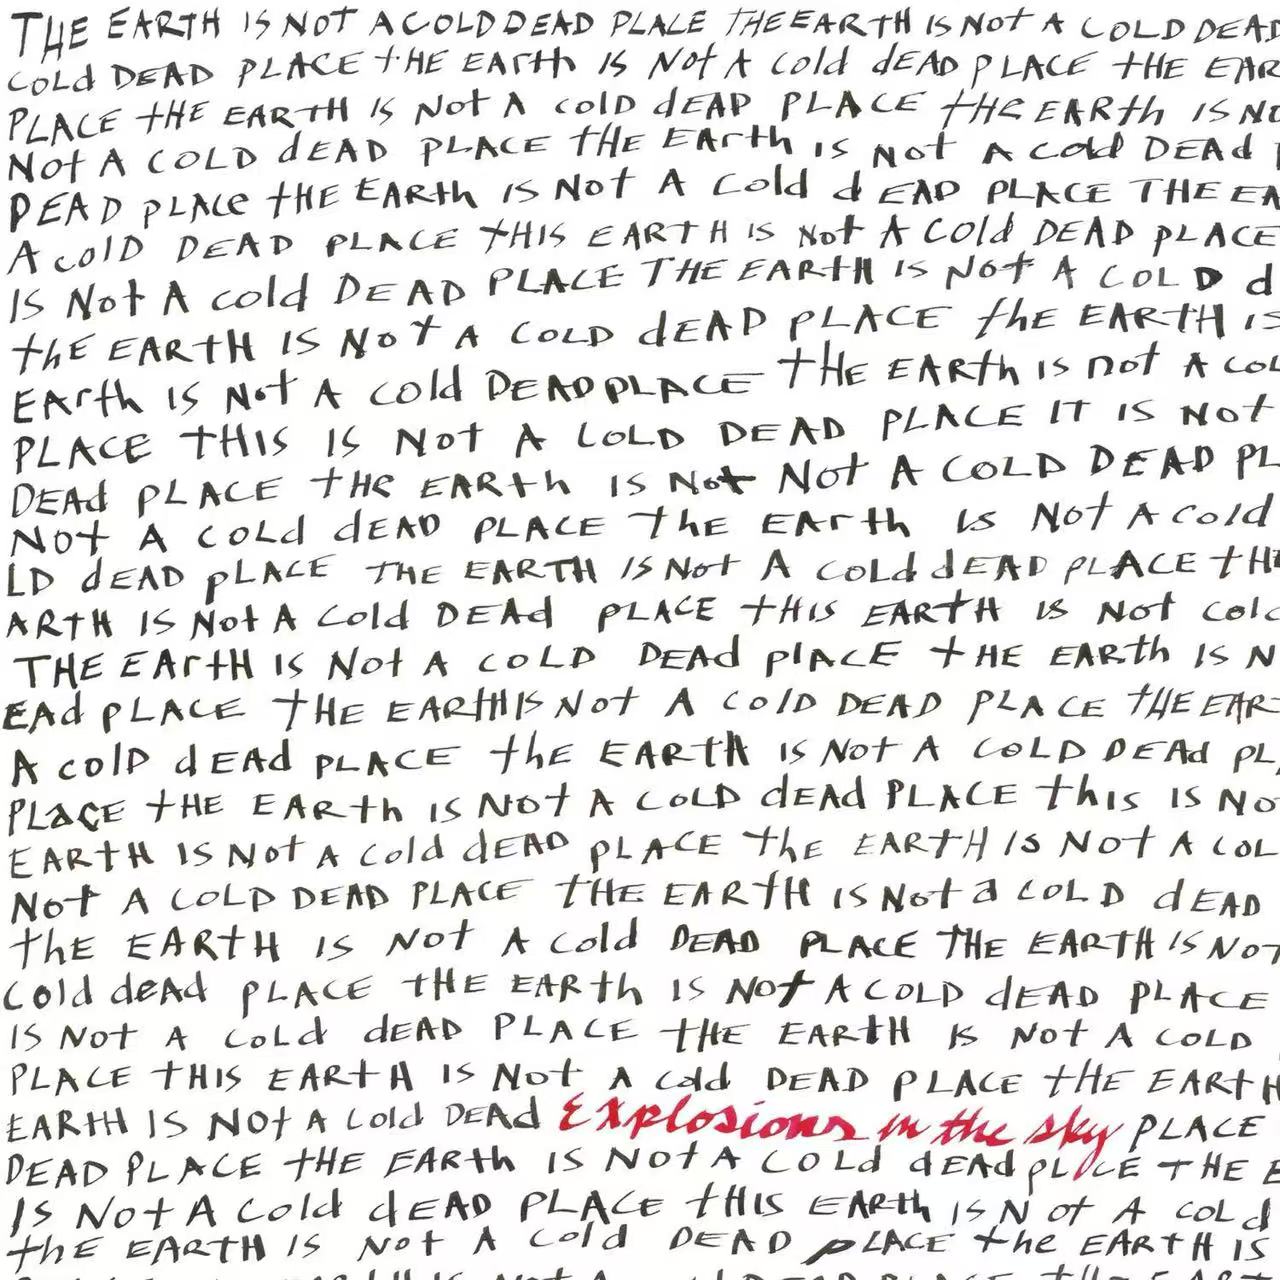 THE EARTH IS NOT A COLD DEAD PLACE THE EARTH IS NOT A COLD DEAD
COLd DEAD PLACE tHE EArth IS Not A cold dEAD PLACE tHE EAR
PLACE tHE EARtH IS Not A colD dEAD PLACE tHe EARth IS NO
Not A COLD dEAD PLACE tHE EArth is Not A cold DEAd
DEAD pLAce tHE EARth IS Not A Cold dEAD PLACE THE EA
A colD DEAD PLACE tHIS EARTH IS Not A Cold DEAD pLACE
IS Not A cold DEAD PLACE THE EARtH IS Not A COLD d
thE EARtH IS Not A COLD dEAD pLACE the EARtH IS
EArth IS Not A cold DEAD PLACE tHE EARth is not A COL
PLACE tHIS IS Not A COLD DEAD PLACE IT IS Not
DEAd pLACE tHe EARth IS Not Not A COLD DEAD PL
Not A COLd dEAD PLACE the EArth is Not A cold
LD dEAD pLACE THE EARTH IS Not A COLd dEAD pLACE tHE
ARTH IS Not A Cold DEAd PLACE tHIS EARtH IS Not cold
THE EArtH IS Not A COLD DEAd plACE tHE EARth IS N
EAd pLACE tHE EARtH IS Not A ColD DEAD PLACE tHE EAR
A colD dEAd PLACE the EARtH IS Not A COLD DEAd pL
PLaCE tHE EARth IS Not A COLD dEAd PLACE this IS No
EARtH IS Not A Cold dEAD pLACE the EARtH IS Not A COL
Not A COLD DEAD PLACE tHE EARtH IS Not a COLD dEAD
thE EARtH IS Not A Cold DEAD PLACE THE EARTH IS NOT
Cold dead pLACE tHE EARth IS Not A COLD dEAD PLACE
IS Not A CoLd dEAD PLACE tHE EARtH IS Not A COLD
PLACE tHIS EARtH IS Not A Cold DEAD PLACE tHE EARtH
EARtH IS Not A Cold DEAd Explosions in the sky PLACE
DEAD PLACE tHE EARth IS Not A COLd dEAd pLACE tHE E
IS Not A Cold dEAD PLACE tHIS EARth IS Not A COLd
thE EARtH IS Not A Cold DEAD pLACE the EARtH IS